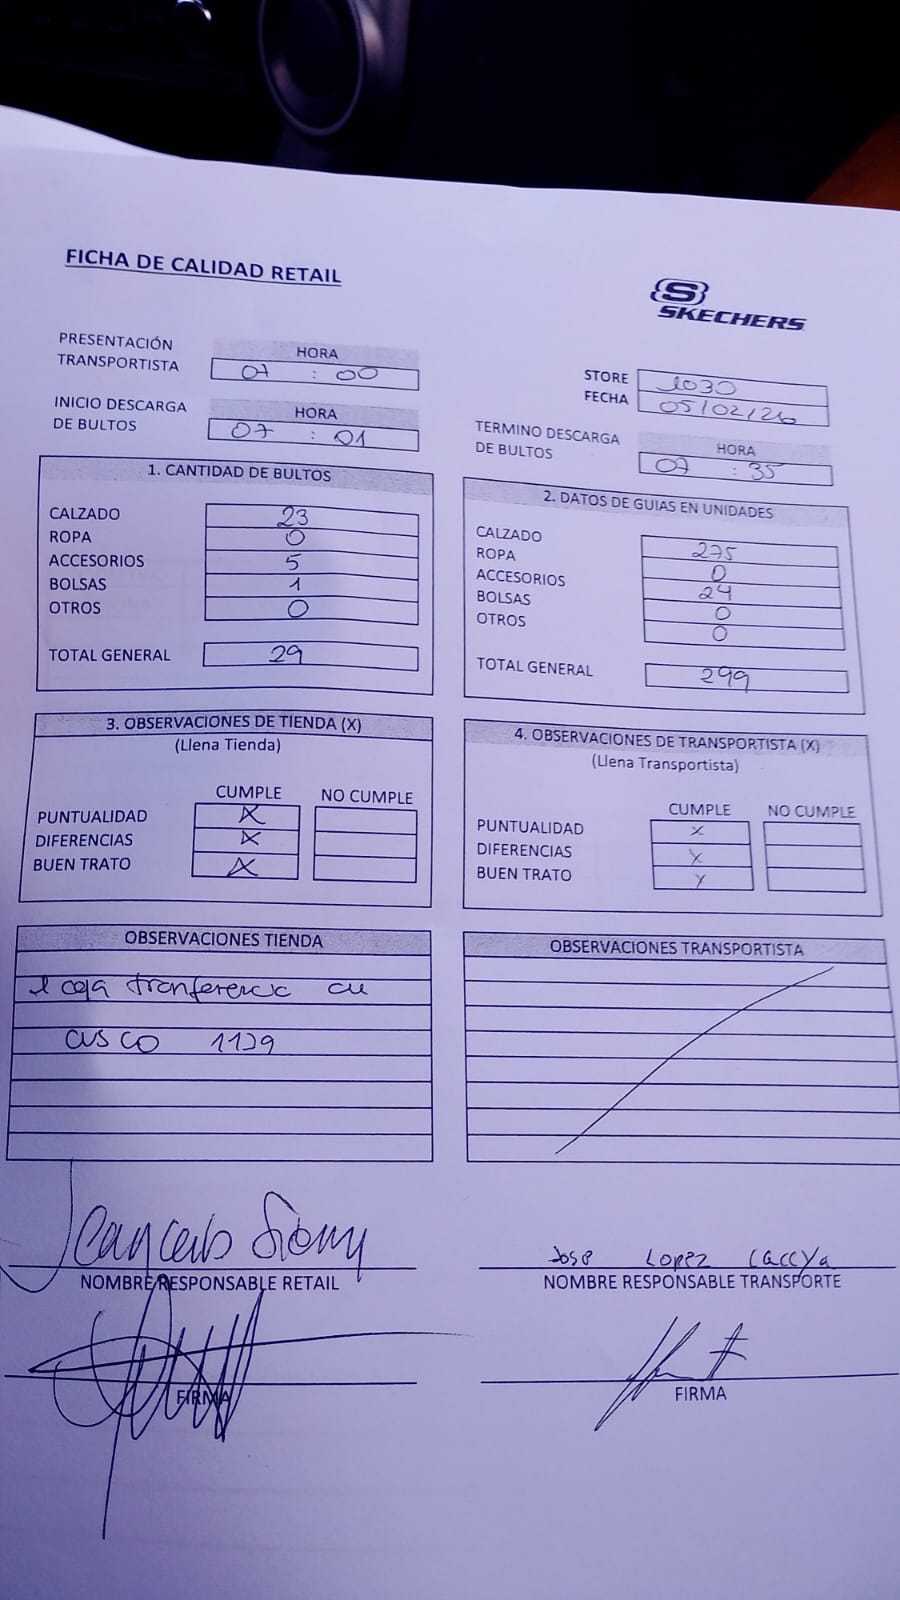 FICHA DE CALIDAD RETAIL
SKECHERS
PRESENTACIÓN TRANSPORTISTA
HORA
07 : 00
STORE 1030
FECHA 05/02/26
INICIO DESCARGA DE BULTOS
HORA
07 : 01
TERMINO DESCARGA DE BULTOS
HORA
07 : 35
1. CANTIDAD DE BULTOS
CALZADO 23
ROPA 0
ACCESORIOS 5
BOLSAS 1
OTROS 0
TOTAL GENERAL 29
2. DATOS DE GUIAS EN UNIDADES
CALZADO 275
ROPA 0
ACCESORIOS 24
BOLSAS 0
OTROS 0
TOTAL GENERAL 299
3. OBSERVACIONES DE TIENDA (X)
(Llena Tienda)
CUMPLE NO CUMPLE
PUNTUALIDAD X
DIFERENCIAS X
BUEN TRATO X
4. OBSERVACIONES DE TRANSPORTISTA (X)
(Llena Transportista)
CUMPLE NO CUMPLE
PUNTUALIDAD X
DIFERENCIAS X
BUEN TRATO X
OBSERVACIONES TIENDA
1 caja tranferencia
CUSCO
OBSERVACIONES TRANSPORTISTA
NOMBRE RESPONSABLE RETAIL
FIRMA
Jose Lopez Caccya
NOMBRE RESPONSABLE TRANSPORTE
FIRMA